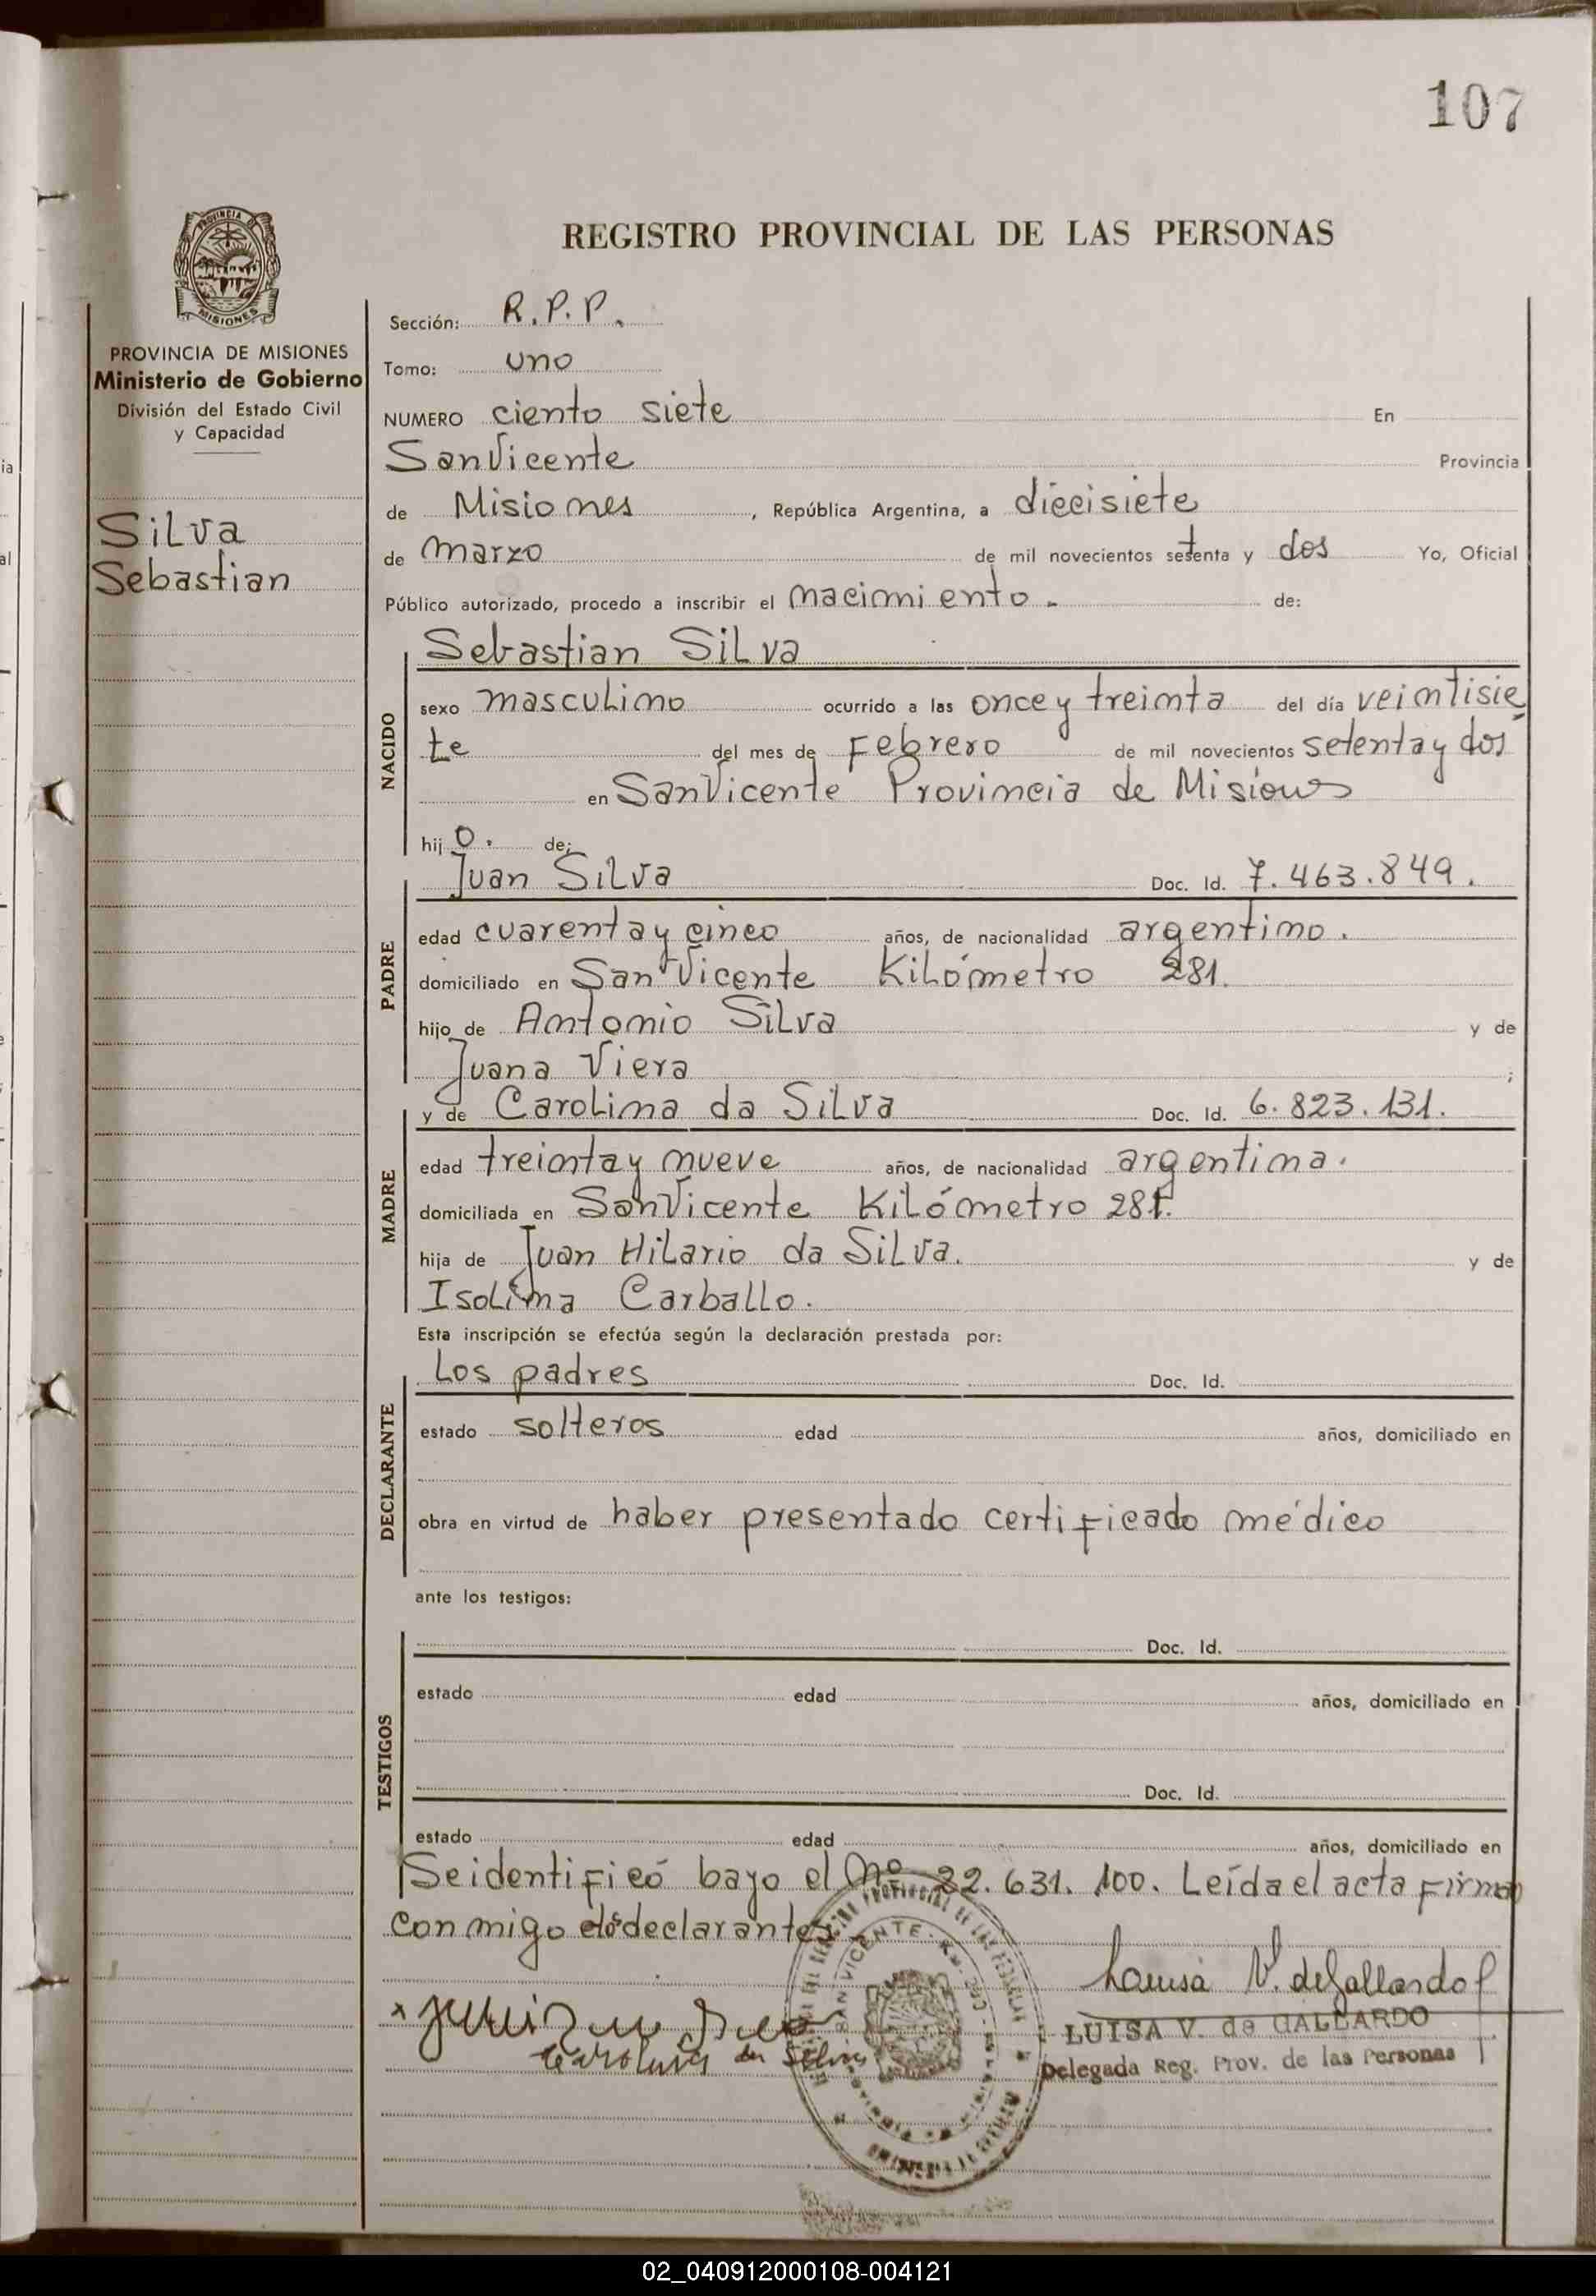 107
REGISTRO PROVINCIAL DE LAS PERSONAS
PROVINCIA DE MISIONES
MISIONES
PROVINCIA DE MISIONES
Ministerio de Gobierno
División del Estado Civil
y Capacidad
Silva
Sebastian
Sección: R.P.P.
Tomo: uno
NUMERO ciento siete En
San Vicente Provincia
de Misiones, República Argentina, a diecisiete
de marzo de mil novecientos setenta y dos Yo, Oficial
Público autorizado, procedo a inscribir el nacimiento.- de:
NACIDO
Sebastian Silva
sexo masculino ocurrido a las once y treinta del día veintisie
te del mes de Febrero de mil novecientos setenta y dos
en San Vicente Provincia de Misiones
hijo. de:
PADRE
Juan Silva Doc. Id. 7.463.849.
edad cuarenta y cinco años, de nacionalidad argentino.
domiciliado en San Vicente Kilómetro 281.
hijo de Antonio Silva y de
Juana Viera ;
MADRE
y de Carolina da Silva Doc. Id. 6.823.131.
edad treinta y nueve años, de nacionalidad argentina.
domiciliada en San Vicente Kilómetro 281.
hija de Juan Hilario da Silva. y de
Isolina Carballo.
Esta inscripción se efectúa según la declaración prestada por:
DECLARANTE
Los padres Doc. Id.
estado solteros edad años, domiciliado en
obra en virtud de haber presentado certificado médico
ante los testigos:
TESTIGOS
Doc. Id.
estado edad años, domiciliado en
Doc. Id.
estado edad años, domiciliado en
Se identificó bajo el Nº 22.631.100. Leída el acta firma
conmigo los declarantes.
Luisa V. de Gallardo
LUISA V. de GALLARDO
Delegada Reg. Prov. de las Personas
Carolina da Silva
SAN VICENTE
02_040912000108-004121